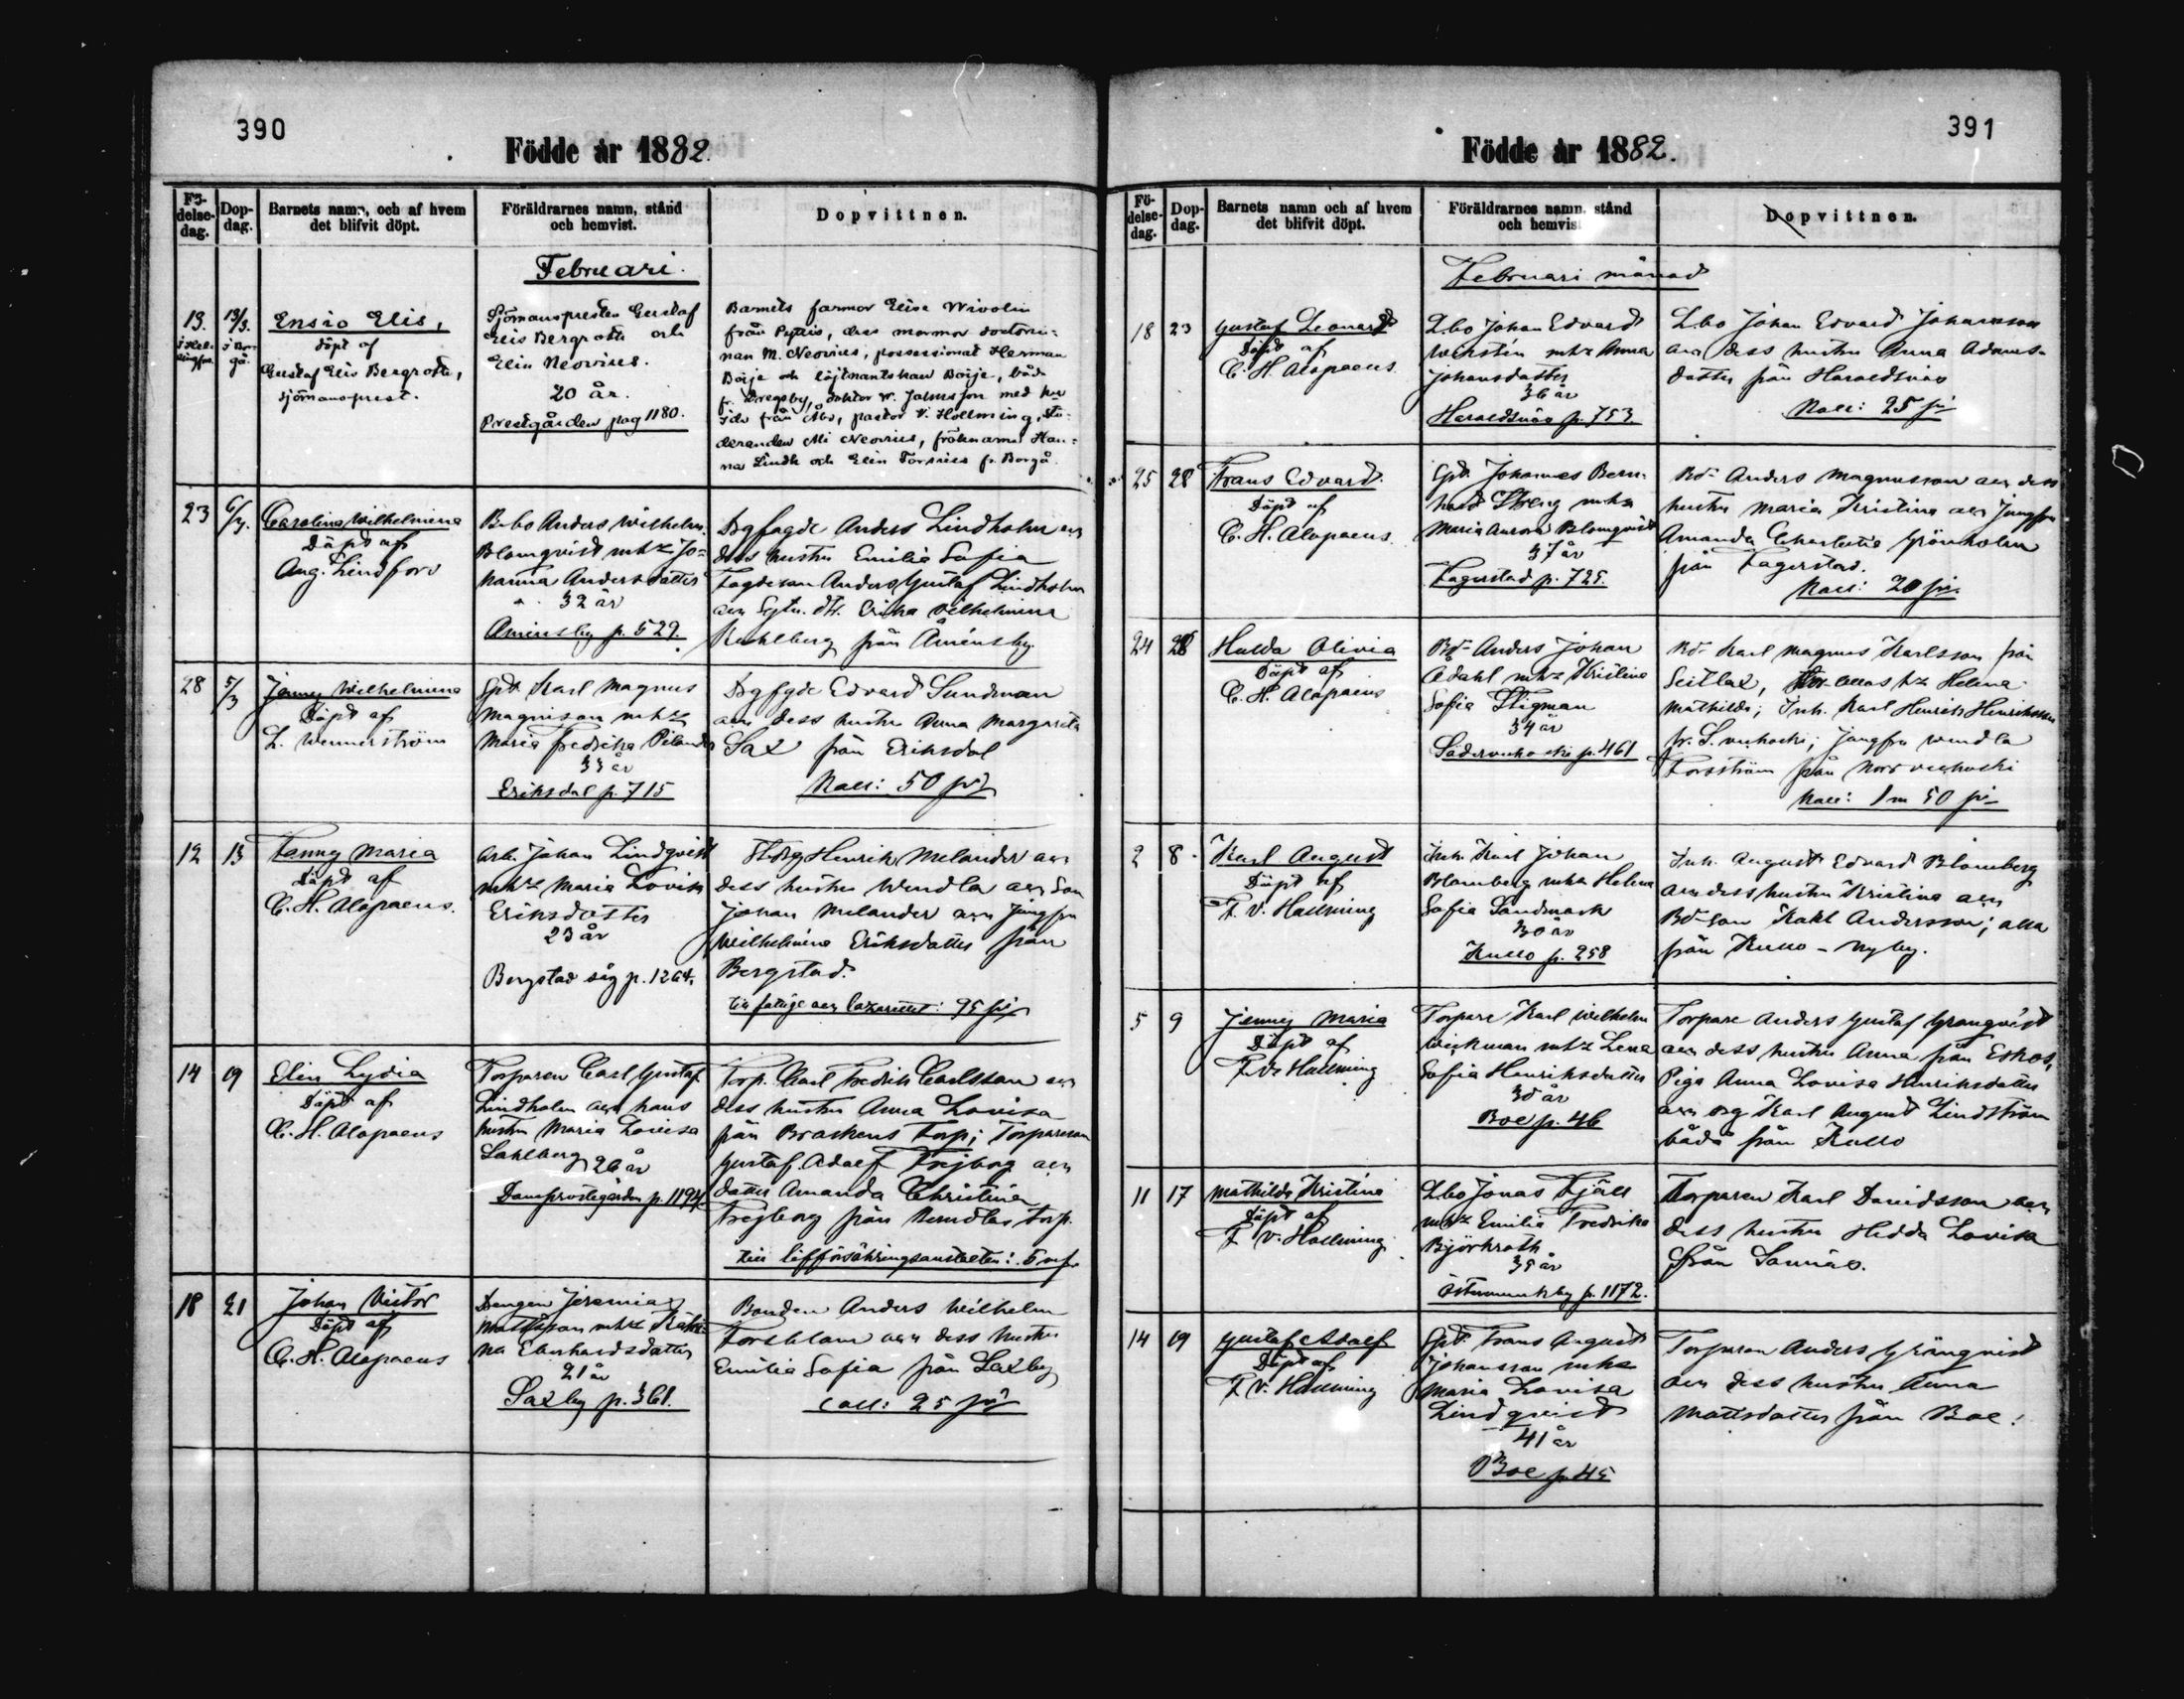 390
Födde år 1882.
Fö-
delse-
dag.
Dop-
dag.
Barnets namn, och af hvem
det blifvit döpt.
Föräldrarnes namn, stånd
och hemvist.
Dopvittnen.
Februari.
13.
i Hel-
singfors.
13/3.
i Bor-
gå.
Ensio Elis,
döpt af
Gustaf Elis Bergroth,
sjömansprest.
Sjömanspresten Gustaf
Elis Bergroth och
Elin Neovius.
20 år.
Prestgården pag 1180.
Barnets farmor Elise Wivolin
från Pyttis, dess mormor doctorin-
nan M. Neovius, possessionat Herman
Börje och löjtnantskan Börje, båda
fr. doktor W. med fru
Ida från Åbo, pastor V. Hollming, stu-
deranden Mi Neovius, fröknarna Han-
na Lindh och Elin Forsius fr. Borgå.
23
6/3.
Carolina Wilhelmina
Döpt af
Aug. Lindfors
Bbo Anders Wilhelm
Blomqvist mhz Jo-
hanna Andersdotter
32 år
Aminsby p. 529.
Dgfogde Anders Lindholm och
dess hustru Emilia Sofia
Fogdeson Anders Gustaf Lindholm
och dtr. Erika Wilhelmina
Kuhlberg från Åminsby.
28
5/3
Jenny Wilhelmina
Döpt af
L. Wennerström
Spb Karl Magnus
Magnison mhz
Maria Fredrika Pelander
33 år
Eriksdal p. 715
Dgfgde Edvard Sundman
och dess hustru Anna Margareta
Sax från Eriksdal
Koll: 50 pi
12
13
Fanny Maria
Döpt af
C. H. Alopaeus.
Arb. Johan Lindqvist
mhz Maria Lovisa
Eriksdotter
23 år
Bergstad såg p. 1264.
Henrik Melander och
dess hustru Wendla och son
Johan Melander och Jungfru
Wilhelmina Eriksdotter från
Bergstad.
till fattige och lazarettet: 95 pi
14
19
Elin Lydia
Döpt af
C. H. Alopaeus
Torparen Carl Gustaf
Lindholm och hans
hustru Maria Lovisa
Sahlberg 26 år
Domprostgården p. 1194
Torp. Karl Fredrik Carlsson och
dess hustru Anna Lovisa
från Braskens Torp; Torpareson
Gustaf Adolf Frejborg och
dotter Amanda Christina
Frejborg från Torp.
till lifförsäkringsanstalten: 5 mf.
18
21
Johan Victor
Döpt af
C. H. Alopaeus
Drengen Jeremias
Mattsson mhz Kata-
na Eberhardsdotter
21 år
Saxby p. 361.
Bonden Anders Wilhelm
Forsblom och dess hustru
Emilia Sofia från Saxby
coll: 25 pi
391
Födde år 1882.
Fö-
delse-
dag.
Dop-
dag.
Barnets namn och af hvem
det blifvit döpt.
Föräldrarnes namn, stånd
och hemvist
Dopvittnen.
Februari månad
18
23
Gustaf Leonard
Döpt af
C. H. Alopaeus.
Lbo Johan Edvard
Wikstén mhz Anna
Johansdotter
36 år
Haraldsnäs p. 753.
Lbo Johan Edvard Johansson
och dess hustru Anna Adams-
dotter från Haraldsnäs
Koll: 25 pi
25
28
Frans Edvard.
Döpt af
C. H. Alopaeus.
Spb. Johannes Bern-
hard mhz
Maria Aurora Blomqvist
37 år
Fagerstad p. 725.
Bd- Anders Magnusson och dess
hustru Maria Kristina och Jungfru
Amanda Charlotta Grönholm
från Fagerstad.
Koll: 20 pi
24
28
Hulda Olivia
Döpt af
C. H. Alopaeus
Bd- Anders Johan
Ådahl mhz Kristina
Sofia Stigman
34 år
Södervekoski p. 461
Bd- Karl Magnus Karlsson från
Seitlax, hz Helena
Mathilda; Inh. Karl Henrik Henriksson
fr. S. vekoski; Jungfru Wendla
Forsström från Norrvekoski
Koll: 1 m 50 pi
2
8
Karl August
Döpt af
F. V. Hollming
Inh. Karl Johan
Blomberg mhz Helena
Sofia Sandmark
30 år
Kullo p. 258
Inh. August Edvard Blomberg
och dess hustru Kristina och
Bdson Karl Andersson; alla
från Kullo - nyby.
5
9
Jenny Maria
Döpt af
F. V. Hollming
Torpare Karl Wilhelm
Wickman mhz Lena
Sofia Henriksdotter
30 år
Boe p. 46
Torpare Anders Gustaf Granqvist
och dess hustru Anna från Eskos,
Piga Anna Lovisa Henriksdotter
och dg Karl August Lindström
båda från Kullo
11
17
Mathilda Kristina
Döpt af
F. V. Hollming
Lbo Jonas Fjäll
mhz Emilia Fredrika
Björkroth
35 år
Östermunkby p. 1172.
Torparen Karl Davidsson och
dess hustru Hedda Lovisa
från Sannäs.
14
19
Gustaf Adolf
Döpt af
F. V. Hollming
Spb. Frans August
Johansson mhz
Maria Lovisa
Lindqvist
41 år
Boe p. 45
Torparen Anders Grönqvist
och dess hustru Anna
Mattsdotter från Boe.